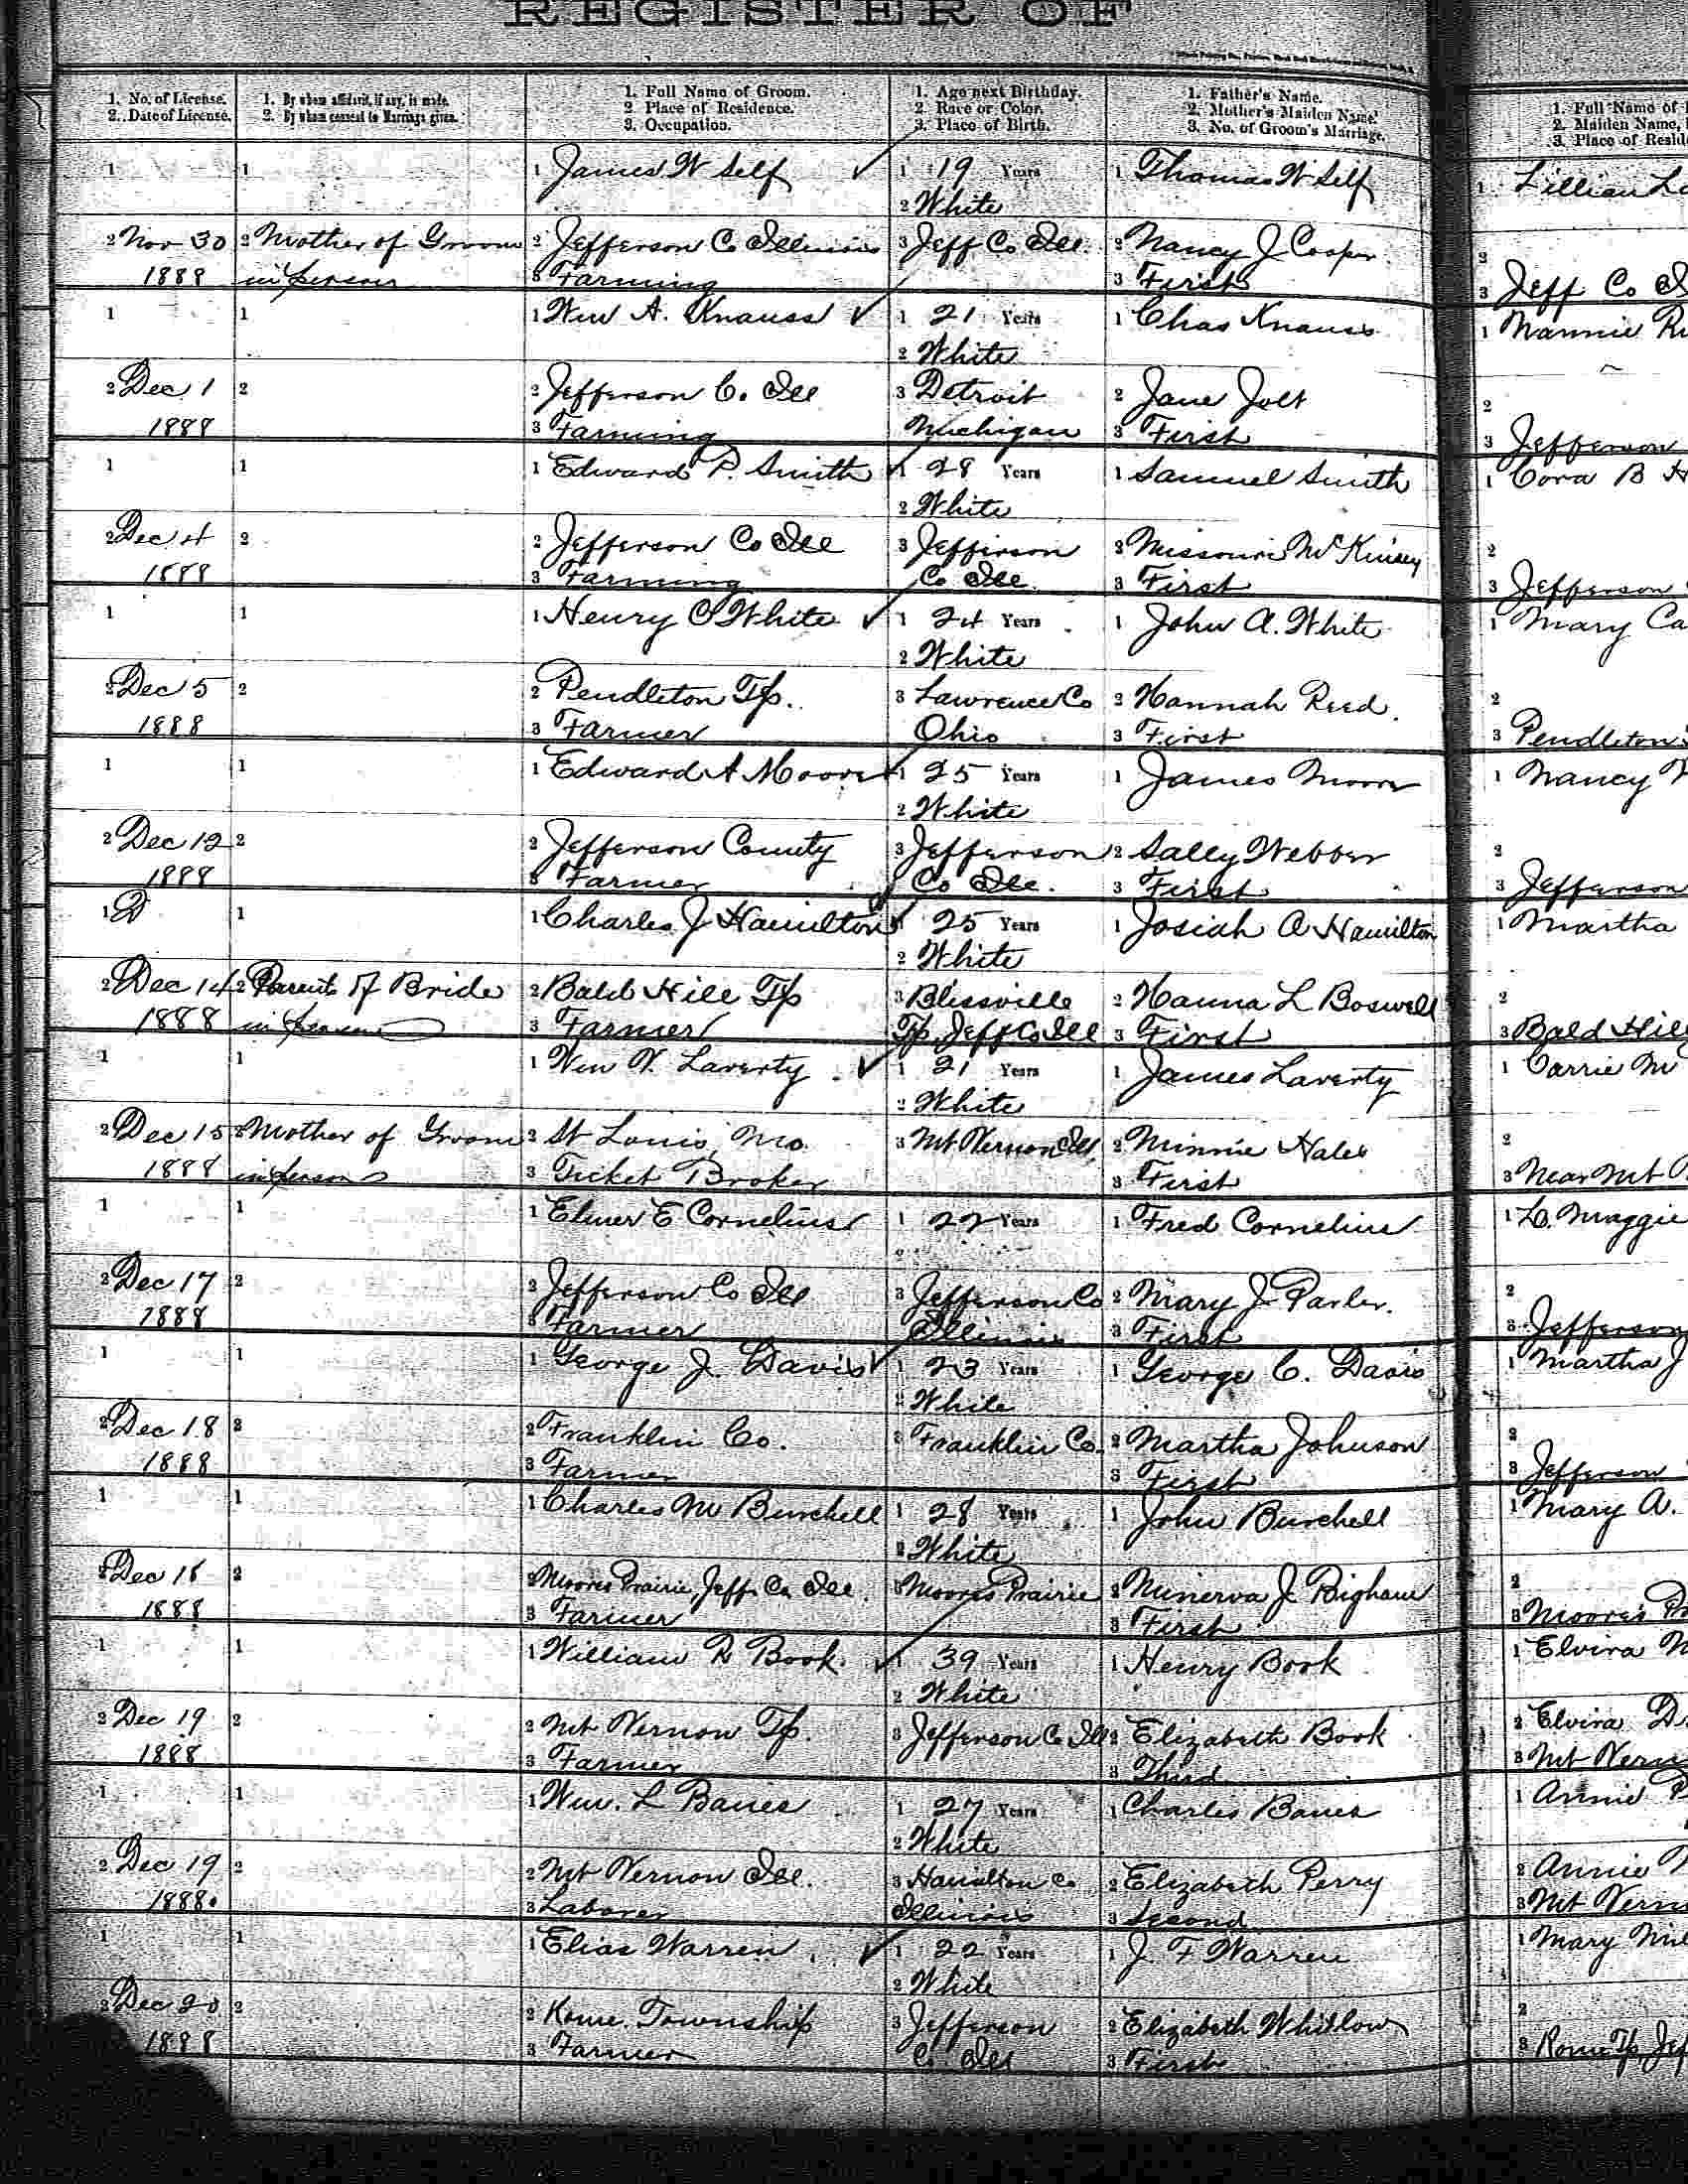 REGISTER OF
1. No. of License. 1. By whom affidavit, if any, is made. 1. Full Name of Groom. 1. Age next Birthday. 1. Father's Name. 1. Full Name of
2. Date of License. 2. By whom consent to Marriage given. 2. Place of Residence. 2. Race or Color. 2. Mother's Maiden Name. 2. Maiden Name,
3. Occupation. 3. Place of Birth. 3. No. of Groom's Marriage. 3. Place of Resid
1 1 1 James W Self 1 19 Years 1 Thomas W Self 1 Lillian
2 White
2 Nov 30 2 Mother of Groom 2 Jefferson Co Illinois 3 Jeff Co Ill. 2 Nancy J Cooper 2
1888 in person 3 Farming 3 First 3 Jeff Co
1 1 1 Wm A. Knauss 1 21 Years 1 Chas Knauss 1 Mannie
2 White
2 Dec. 1 2 2 Jefferson C. Ill 3 Detroit 2 Jane Jolt 2
1888 3 Farming Michigan 3 First 3 Jefferson
1 1 1 Edward P. Smith 1 28 Years 1 Samuel Smith 1 Cora B H
2 White
2 Dec 4 2 2 Jefferson Co Ill 3 Jefferson 2 Missouri McKinsey 2
1888 3 Farming Co Ill. 3 First 3 Jefferson
1 1 1 Henry C White 1 24 Years 1 John A. White 1 Mary Ca
2 White
2 Dec 5 2 2 Pendleton Tp. 3 Lawrence Co 2 Hannah Reed. 2
1888 3 Farmer Ohio 3 First 3 Pendleton
1 1 1 Edward A Moore 1 25 Years 1 James Moore 1 Nancy
2 White
2 Dec 12 2 2 Jefferson County 3 Jefferson 2 Sally Webber 2
1888 3 Farmer Co Ill. 3 First 3 Jefferson
1 D 1 1 Charles J Hamilton 1 25 Years 1 Josiah A Hamilton 1 Martha
2 White
2 Dec 14 2 Parents of Bride 2 Bald Hill Tp 3 Blissville 2 Hanna L Boswell 2
1888 in person 3 Farmer Tp, Jeff Co Ill 3 First 3 Bald Hill
1 1 1 Wm V. Laverty 1 21 Years 1 James Laverty 1 Carrie M
2 White
2 Dec 15 2 Mother of Groom 2 St Louis, Mo. 3 Mt Vernon Ill. 2 Minnie Hales 2
1888 in person 3 Ticket Broker 3 First 3 Near Mt
1 1 1 Elmer E Cornelius 1 22 Years 1 Fred Cornelius 1 L. Maggie
2 Dec 17 2 2 Jefferson Co Ill 3 Jefferson Co 2 Mary J Parler. 2
1888 3 Farmer Illinois 3 First 3 Jefferson
1 1 1 George J. Davis 1 23 Years 1 George C. Davis 1 Martha J
2 White
2 Dec 18 2 2 Franklin Co. 3 Franklin Co. 2 Martha Johnson 2
1888 3 Farmer 3 First 3 Jefferson
1 1 1 Charles M Burchell 1 28 Years 1 John Burchell 1 Mary A.
2 White
2 Dec 18 2 2 Moores Prairie, Jeff. Co. Ill. 3 Moores Prairie 2 Minerva J Bigham 2
1888 3 Farmer 3 First 3 Moore's
1 1 1 William R Book. 1 39 Years 1 Henry Book 1 Elvira
2 White
2 Dec 19 2 2 Mt Vernon Tp. 3 Jefferson Co Ill 2 Elizabeth Book 2 Elvira
1888 3 Farmer 3 Third 3 Mt Vern
1 1 1 Wm. L Banes 1 27 Years 1 Charles Banes 1 Annie
2 White
2 Dec 19 2 2 Mt Vernon Ill. 3 Hamilton Co 2 Elizabeth Perry 2 Annie
1888. 3 Laborer Illinois 3 Second 3 Mt Vern
1 1 1 Elias Warren 1 22 Years 1 J. F Warren 1 Mary
2 White
2 Dec 20 2 2 Rome Township 3 Jefferson 2 Elizabeth Whitlow 2
1888 3 Farmer Co Ill 3 First 3 Rome Tp, Jef